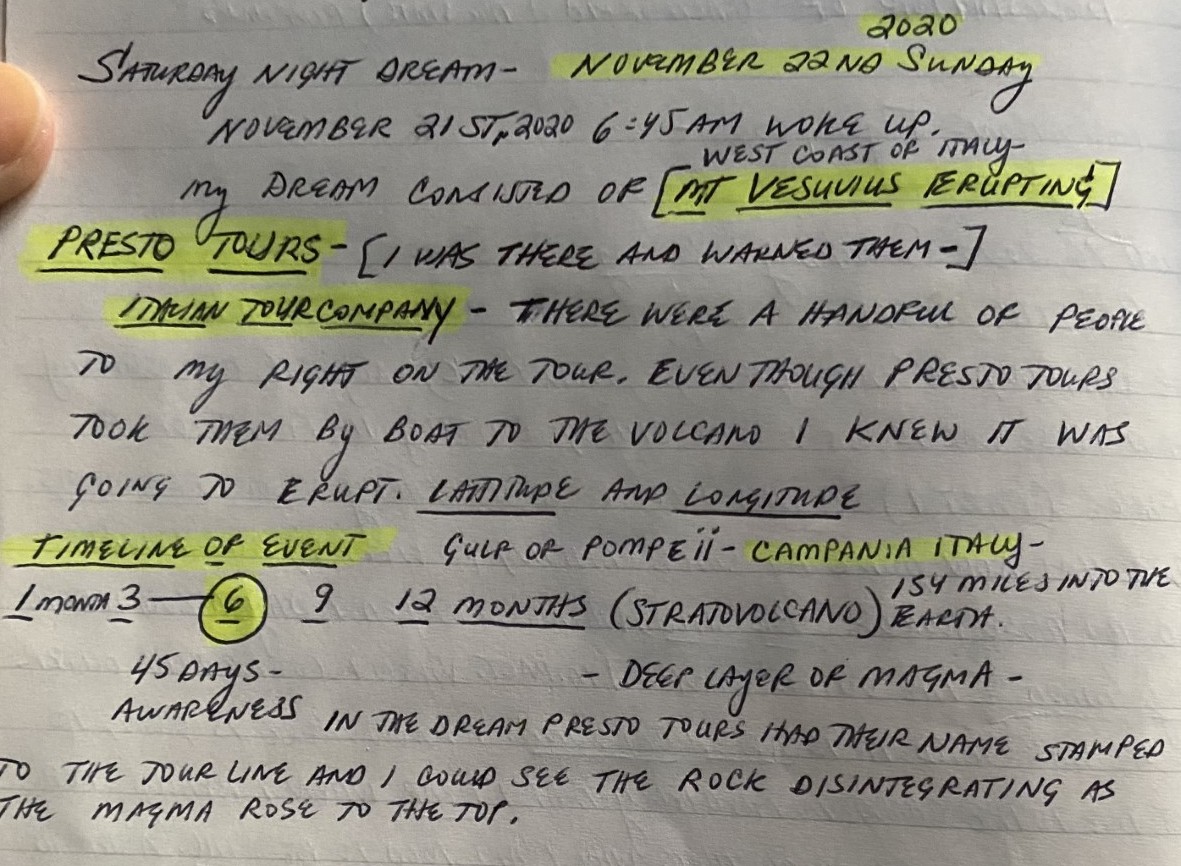 2020
SATURDAY NIGHT DREAM- NOVEMBER 22ND SUNDAY
NOVEMBER 21ST, 2020 6:45AM WOKE UP.
WEST COAST OF ITALY-
MY DREAM CONSISTED OF [MT VESUVIUS ERUPTING]
PRESTO TOURS- [I WAS THERE AND WARNED THEM-]
ITALIAN TOUR COMPANY - THERE WERE A HANDFUL OF PEOPLE
TO MY RIGHT ON THE TOUR. EVEN THOUGH PRESTO TOURS
TOOK THEM BY BOAT TO THE VOLCANO I KNEW IT WAS
GOING TO ERUPT. LATITUDE AND LONGITUDE
TIMELINE OF EVENT GULF OF POMPEII- CAMPANIA ITALY-
1 MONTH 3—6 9 12 MONTHS (STRATOVOLCANO) 154 MILES INTO THE
EARTH.
45 DAYS- - DEEP LAYER OF MAGMA -
AWARENESS IN THE DREAM PRESTO TOURS HAD THEIR NAME STAMPED
TO THE TOUR LINE AND I COULD SEE THE ROCK DISINTEGRATING AS
THE MAGMA ROSE TO THE TOP.